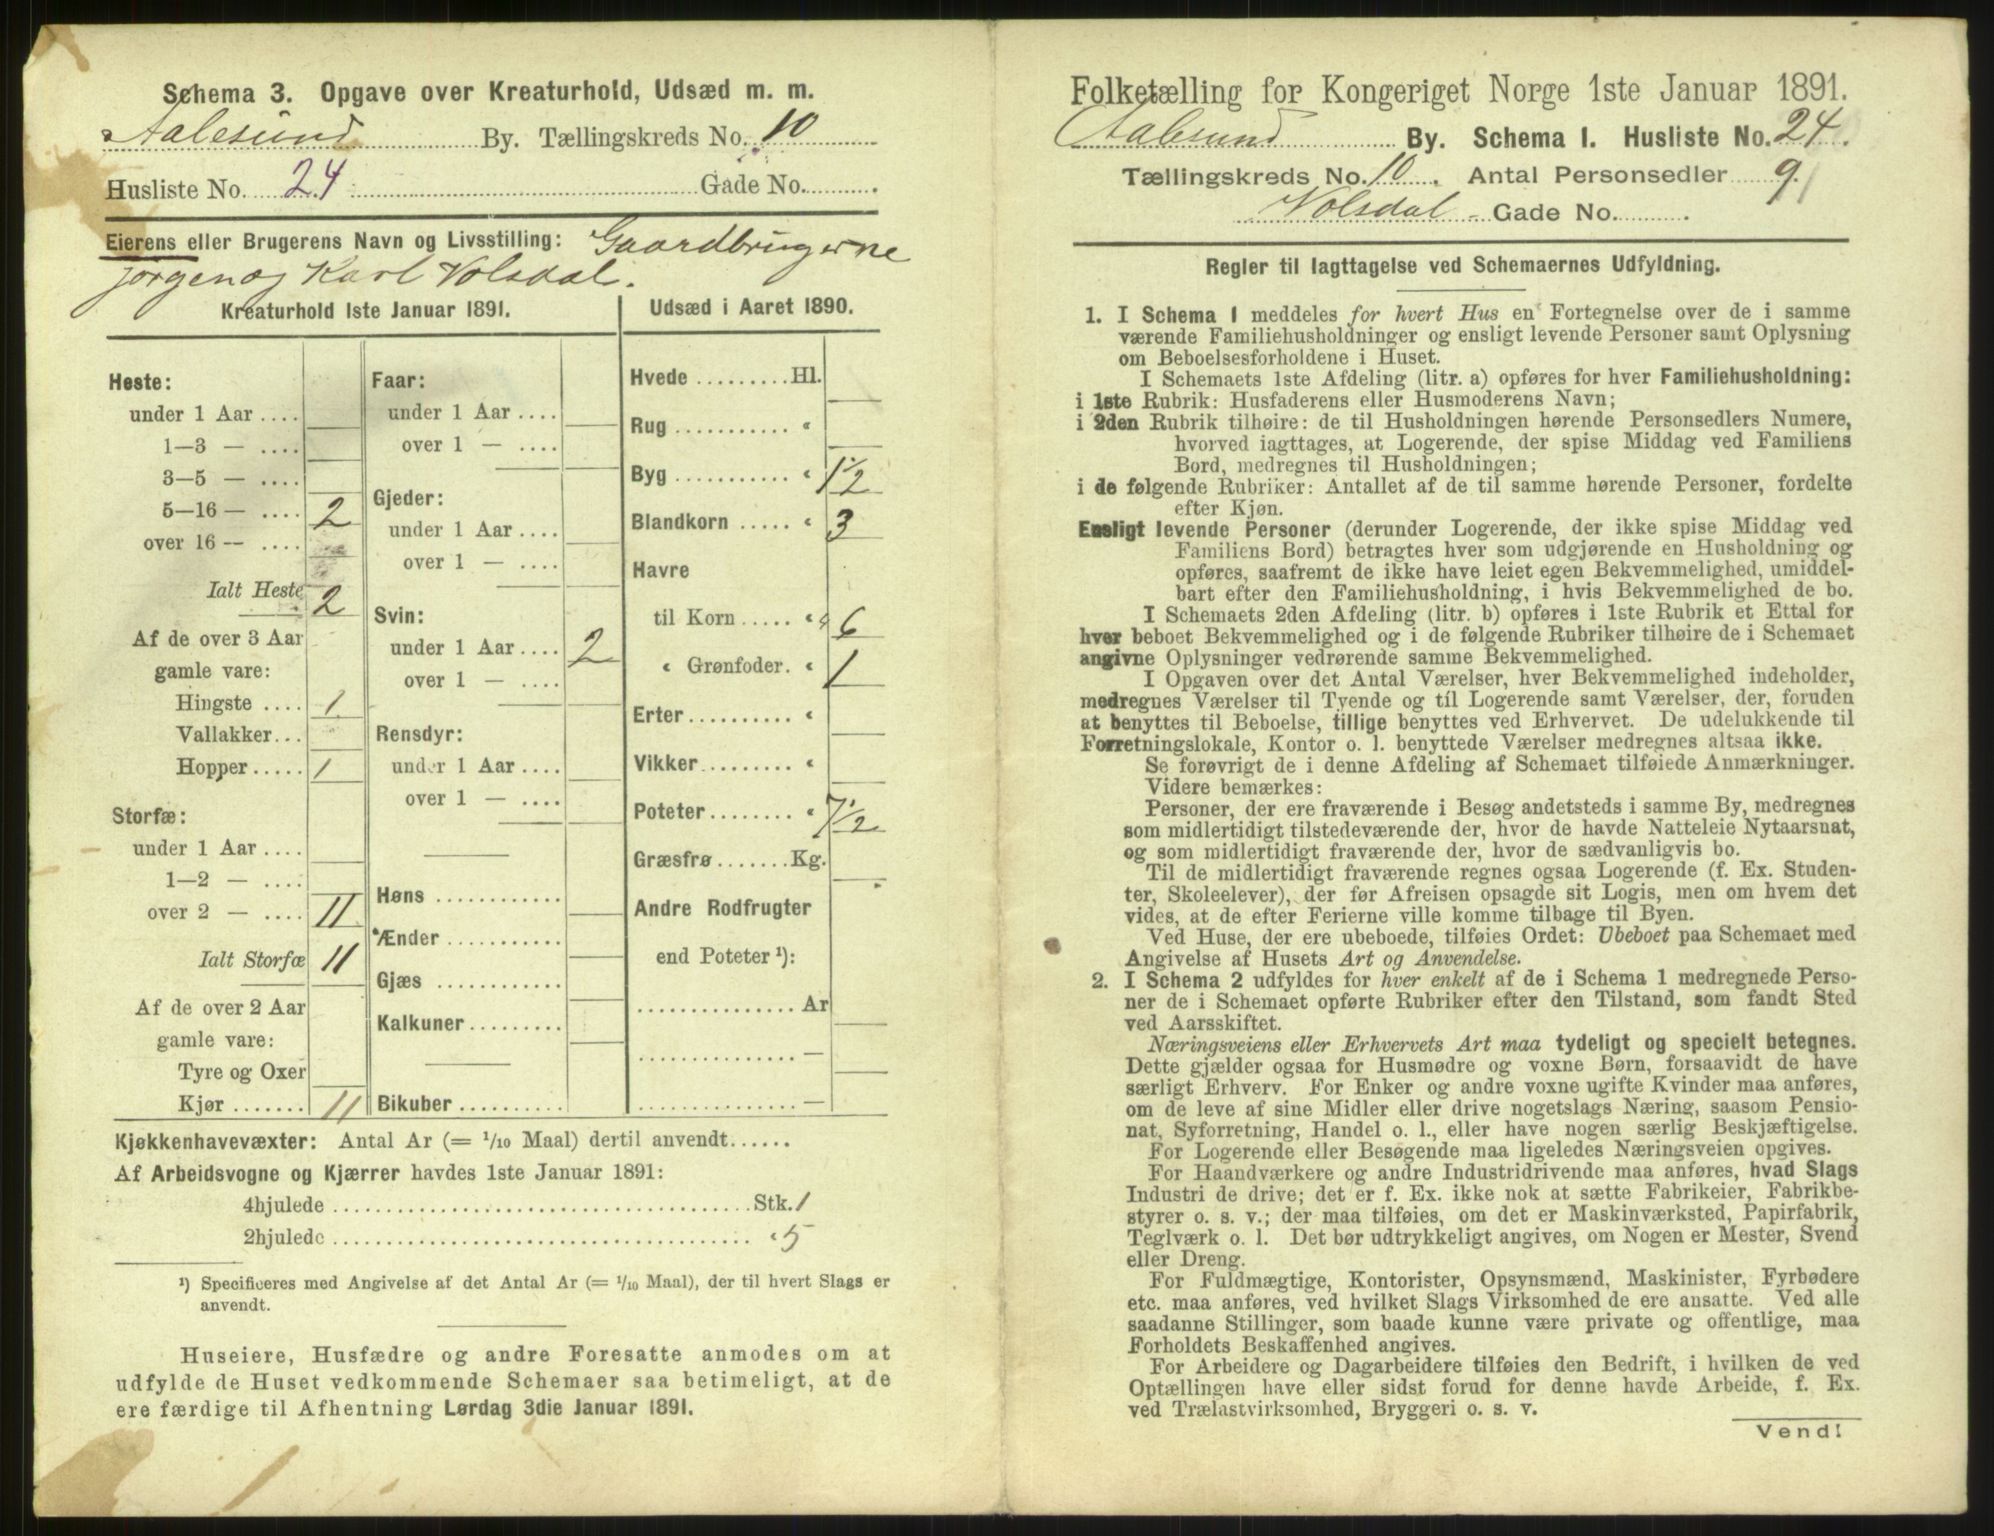 Schema 3. Opgave over Kreaturhold, Udsæd m. m.
Aalesund By. Tællingskreds No. 10
Husliste No. 24 Gade No.
Eierens eller Brugerens Navn og Livsstilling: Gaardbrugerne
Jørgen og Karl Volsdal.
Kreaturhold 1ste Januar 1891.
Heste:
under 1 Aar ....
1—3 — ....
3—5 — ....
5—16 — .... 2
over 16 — ....
Ialt Heste 2
Af de over 3 Aar
gamle vare:
Hingste .... 1
Vallakker...
Hopper ..... 1
Storfæ:
under 1 Aar ....
1—2 — ....
over 2 — .... 11
Ialt Storfæ 11
Af de over 2 Aar
gamle vare:
Tyre og Oxer
Kjør ....... 11
Faar:
under 1 Aar ....
over 1 — ....
Gjeder:
under 1 Aar ....
over 1 — ....
Svin:
under 1 Aar .... 2
over 1 — ....
Rensdyr:
under 1 Aar ....
over 1 — ....
Høns ............
Ænder ...........
Gjæs ............
Kalkuner .........
Bikuber ..........
Udsæd i Aaret 1890.
Hvede ......... Hl.
Rug ........... «
Byg ........... « 1½
Blandkorn ..... « 3
Havre
til Korn ..... « 6
« Grønfoder. « 1
Erter .......... «
Vikker ......... «
Poteter ........ « 7½
Græsfrø ....... Kg.
Andre Rodfrugter
end Poteter ¹):
............... Ar
............... —
............... —
Kjøkkenhavevæxter: Antal Ar (= 1/10 Maal) dertil anvendt......
Af Arbeidsvogne og Kjærrer havdes 1ste Januar 1891:
4hjulede ........ Stk. 1
2hjulede ........ « 5
¹) Specificeres med Angivelse af det Antal Ar (= 1/10 Maal), der til hvert Slags er
anvendt.
Huseiere, Husfædre og andre Foresatte anmodes om at
udfylde de Huset vedkommende Schemaer saa betimeligt, at de
ere færdige til Afhentning Lørdag 3die Januar 1891.
Folketælling for Kongeriget Norge 1ste Januar 1891.
Aalesund By. Schema 1. Husliste No. 24
Tællingskreds No. 10. Antal Personsedler 9
Volsdal - Gade No. .
Regler til Iagttagelse ved Schemaernes Udfyldning.
1. I Schema 1 meddeles for hvert Hus en Fortegnelse over de i samme
værende Familiehusholdninger og ensligt levende Personer samt Oplysning
om Beboelsesforholdene i Huset.
I Schemaets 1ste Afdeling (litr. a) opføres for hver Familiehusholdning:
i 1ste Rubrik: Husfaderens eller Husmoderens Navn;
i 2den Rubrik tilhøire: de til Husholdningen hørende Personsedlers Numere,
hvorved iagttages, at Logerende, der spise Middag ved Familiens
Bord, medregnes til Husholdningen;
i de følgende Rubriker: Antallet af de til samme hørende Personer, fordelte
efter Kjøn.
Ensligt levende Personer (derunder Logerende, der ikke spise Middag ved
Familiens Bord) betragtes hver som udgjørende en Husholdning og
opføres, saafremt de ikke have leiet egen Bekvemmelighed, umiddel-
bart efter den Familiehusholdning, i hvis Bekvemmelighed de bo.
I Schemaets 2den Afdeling (litr. b) opføres i 1ste Rubrik et Ettal for
hver beboet Bekvemmelighed og i de følgende Rubriker tilhøire de i Schemaet
angivne Oplysninger vedrørende samme Bekvemmelighed.
I Opgaven over det Antal Værelser, hver Bekvemmelighed indeholder,
medregnes Værelser til Tyende og til Logerende samt Værelser, der, foruden
at benyttes til Beboelse, tillige benyttes ved Erhvervet. De udelukkende til
Forretningslokale, Kontor o. l. benyttede Værelser medregnes altsaa ikke.
Se forøvrigt de i denne Afdeling af Schemaet tilføiede Anmærkninger.
Videre bemærkes:
Personer, der ere fraværende i Besøg andetsteds i samme By, medregnes
som midlertidigt tilstedeværende der, hvor de havde Natteleie Nytaarsnat,
og som midlertidigt fraværende der, hvor de sædvanligvis bo.
Til de midlertidigt fraværende regnes ogsaa Logerende (f. Ex. Studen-
ter, Skoleelever), der før Afreisen opsagde sit Logis, men om hvem det
vides, at de efter Ferierne ville komme tilbage til Byen.
Ved Huse, der ere ubeboede, tilføies Ordet: Ubeboet paa Schemaet med
Angivelse af Husets Art og Anvendelse.
2. I Schema 2 udfyldes for hver enkelt af de i Schema 1 medregnede Perso-
ner de i Schemaet opførte Rubriker efter den Tilstand, som fandt Sted
ved Aarsskiftet.
Næringsveiens eller Erhvervets Art maa tydeligt og specielt betegnes.
Dette gjælder ogsaa for Husmødre og voxne Børn, forsaavidt de have
særligt Erhverv. For Enker og andre voxne ugifte Kvinder maa anføres,
om de leve af sine Midler eller drive nogetslags Næring, saasom Pensio-
nat, Syforretning, Handel o. l., eller have nogen særlig Beskjæftigelse.
For Logerende eller Besøgende maa ligeledes Næringsveien opgives.
For Haandværkere og andre Industridrivende maa anføres, hvad Slags
Industri de drive; det er f. Ex. ikke nok at sætte Fabrikeier, Fabrikbe-
styrer o. s. v.; der maa tilføies, om det er Maskinværksted, Papirfabrik,
Teglværk o. l. Det bør udtrykkeligt angives, om Nogen er Mester, Svend
eller Dreng.
For Fuldmægtige, Kontorister, Opsynsmænd, Maskinister, Fyrbødere
etc. maa anføres, ved hvilket Slags Virksomhed de ere ansatte. Ved alle
saadanne Stillinger, som baade kunne være private og offentlige, maa
Forholdets Beskaffenhed angives.
For Arbeidere og Dagarbeidere tilføies den Bedrift, i hvilken de ved
Optællingen have eller sidst forud for denne havde Arbeide, f. Ex.
ved Trælastvirksomhed, Bryggeri o. s. v.
Vend!